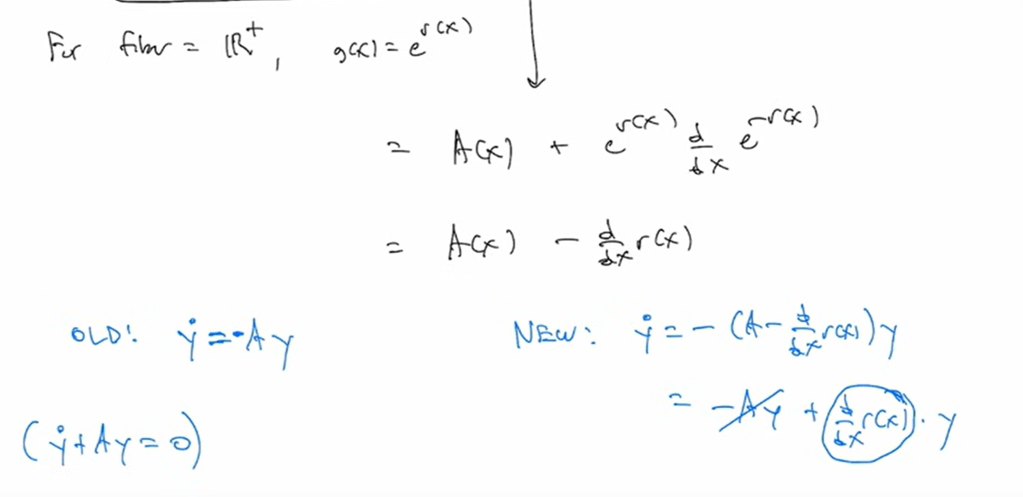 For fiber = ℝ⁺, g(x) = e^{r(x)}
= A(x) + e^{r(x)} d/dx e^{-r(x)}
= A(x) - d/dx r(x)
OLD: ẏ = -Ay
NEW: ẏ = -(A - d/dx r(x))y
= -Ay + (d/dx r(x)) · y
(ẏ + Ay = 0)